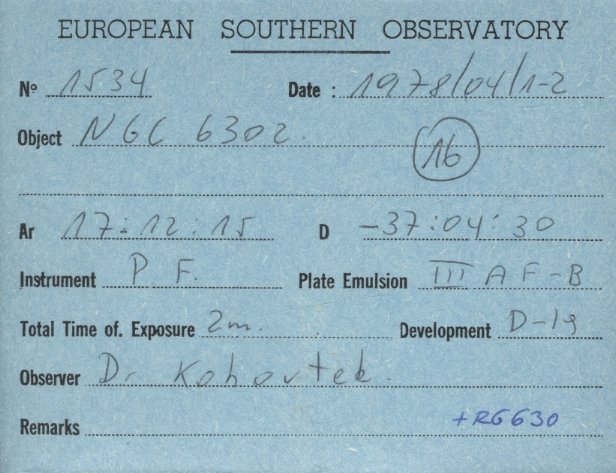 EUROPEAN SOUTHERN OBSERVATORY
Nº 1534 Date : 1978/04/1-2
Object NGC 6302. 16
Ar 17:12:15 D -37:04:30
Instrument P F. Plate Emulsion III A F-B
Total Time of. Exposure 2m. Development D-19
Observer Dr Kohoutek.
Remarks +RG630